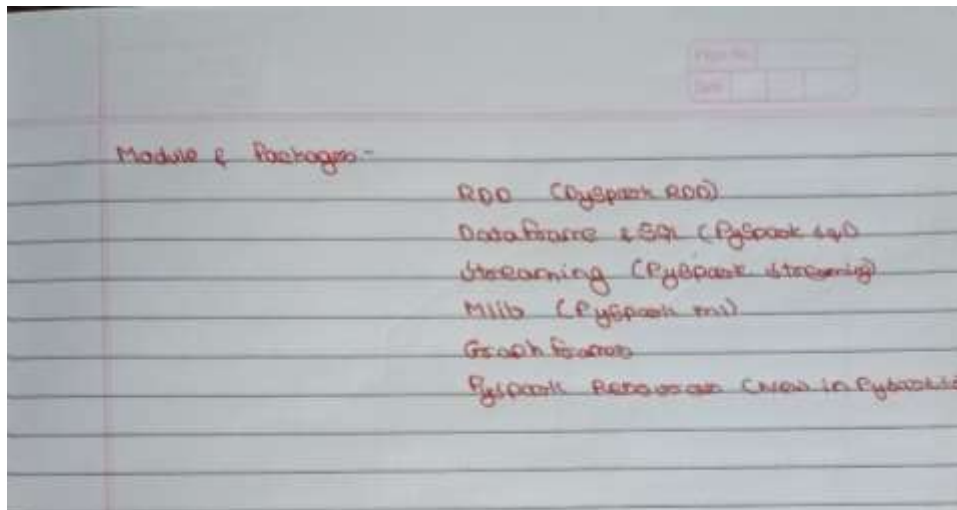 Page No.
Date
Module & Packages:-
RDD (PySpark RDD)
DataFrame & SQL (PySpark sql)
Streaming (PySpark streaming)
Mllib (PySpark ml)
Graph frames
Pyspark (New in Pyspark